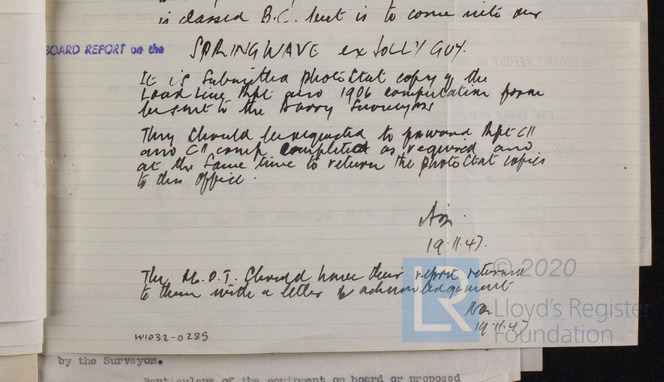 is classed B.C. but is to come into our
BOARD REPORT on the
SPRINGWAVE ex JOLLY GUY.
It is submitted photostat copy of the
Load Line Rpt and 1906 computation form
be sent to the Barry Surveyors
They should be requested to forward Rpt C11
and C11 comp completed as required and
at the same time to return the photostat copies
to this office.
19.11.47.
The M.O.T. should have their report returned
to them with a letter of acknowledgement
19.11.47
W1032-0285
© 2020
LR
Lloyd's Register
Foundation
by the Surveyor.
Particulars of the equipment on board or proposed